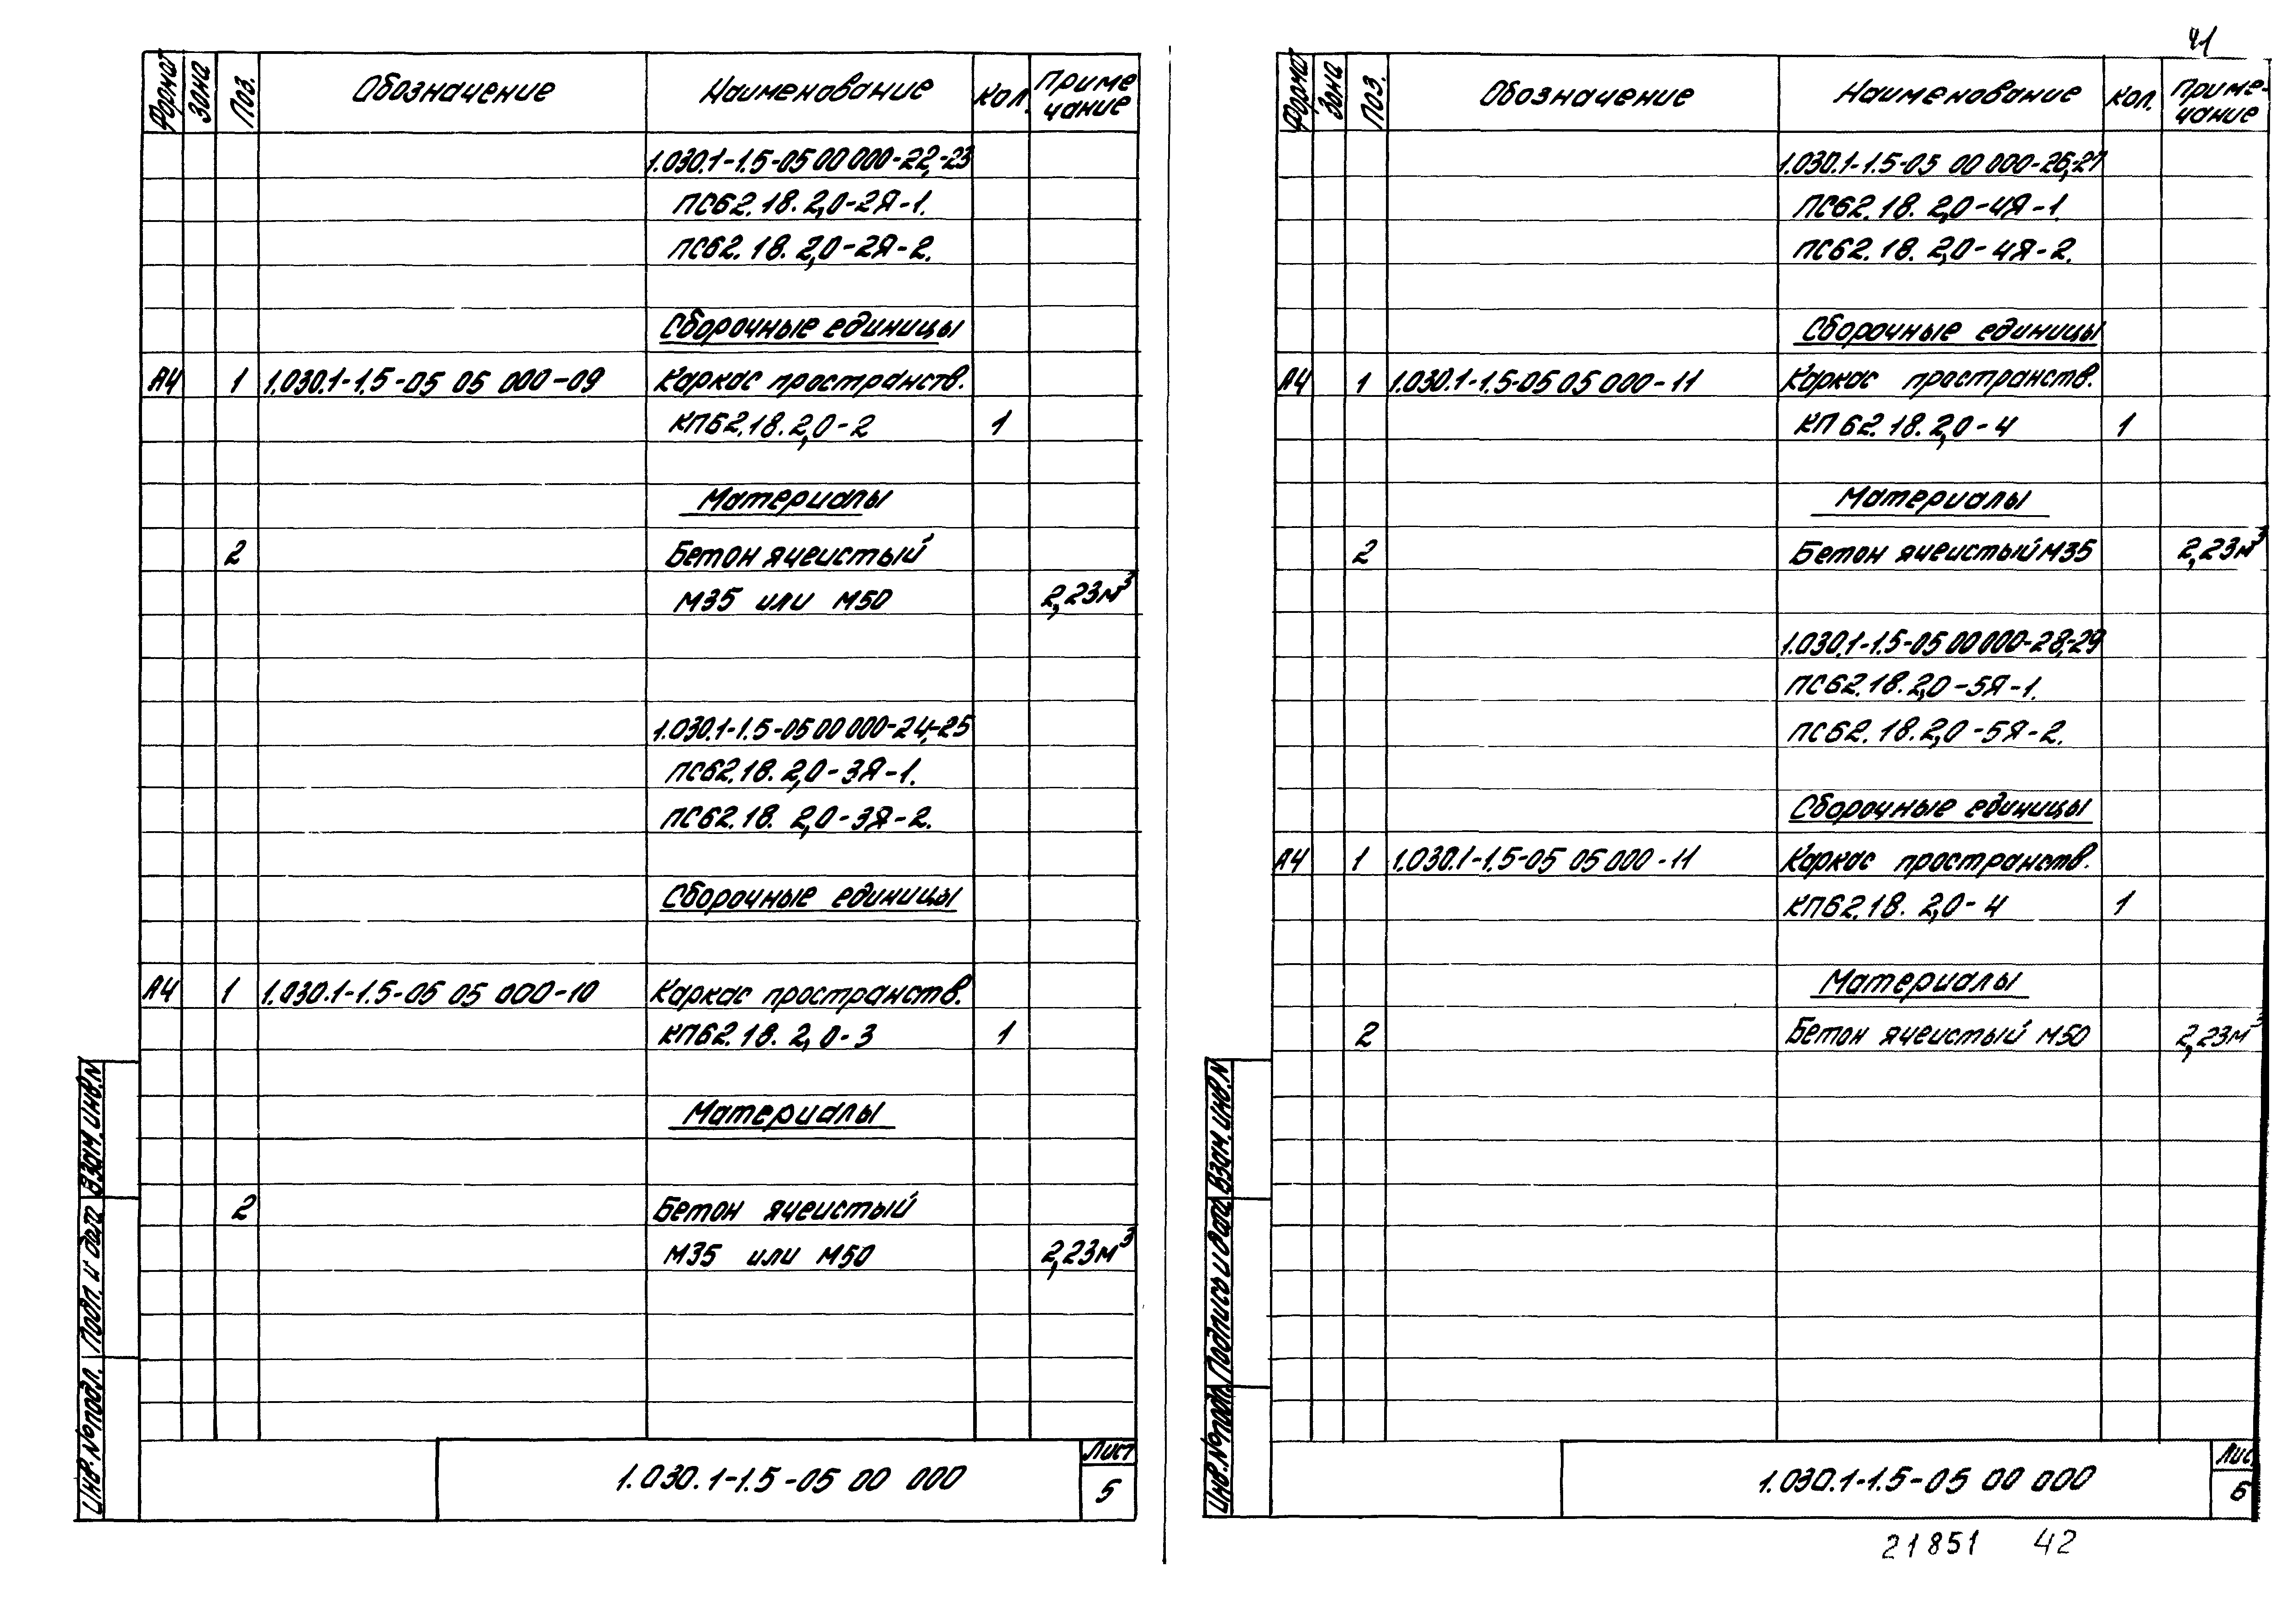 41
Формат Зона Поз. Обозначение Наименование Кол. Приме
чание
1.030.1-1.5-05 00 000-22,-23
ПС62.18.2,0-2Я-1.
ПС62.18.2,0-2Я-2.
Сборочные единицы
А4 1 1.030.1-1.5-05 05 000-09 Каркас пространств.
КП62.18.2,0-2 1
Материалы
2 Бетон ячеистый
М35 или М50 2,23м³
1.030.1-1.5-05 00 000-24,-25
ПС62.18.2,0-3Я-1.
ПС62.18.2,0-3Я-2.
Сборочные единицы
А4 1 1.030.1-1.5-05 05 000-10 Каркас пространств.
КП62.18.2,0-3 1
Материалы
2 Бетон ячеистый
М35 или М50 2,23м³
Инв.№подл. Подп. и дата Взам.инв.N
1.030.1-1.5-05 00 000
Лист
5
Формат Зона Поз. Обозначение Наименование Кол. Приме-
чание
1.030.1-1.5-05 00 000-26,-27
ПС62.18.2,0-4Я-1.
ПС62.18.2,0-4Я-2.
Сборочные единицы
А4 1 1.030.1-1.5-05 05 000-11 Каркас пространств.
КП62.18.2,0-4 1
Материалы
2 Бетон ячеистый М35 2,23м³
1.030.1-1.5-05 00 000-28,-29
ПС62.18.2,0-5Я-1.
ПС62.18.2,0-5Я-2.
Сборочные единицы
А4 1 1.030.1-1.5-05 05 000-11 Каркас пространств.
КП62.18.2,0-4 1
Материалы
2 Бетон ячеистый М50 2,23м³
Инв.№подл. Подпись и дата Взам.инв.N
1.030.1-1.5-05 00 000
Лис
6
21851 42